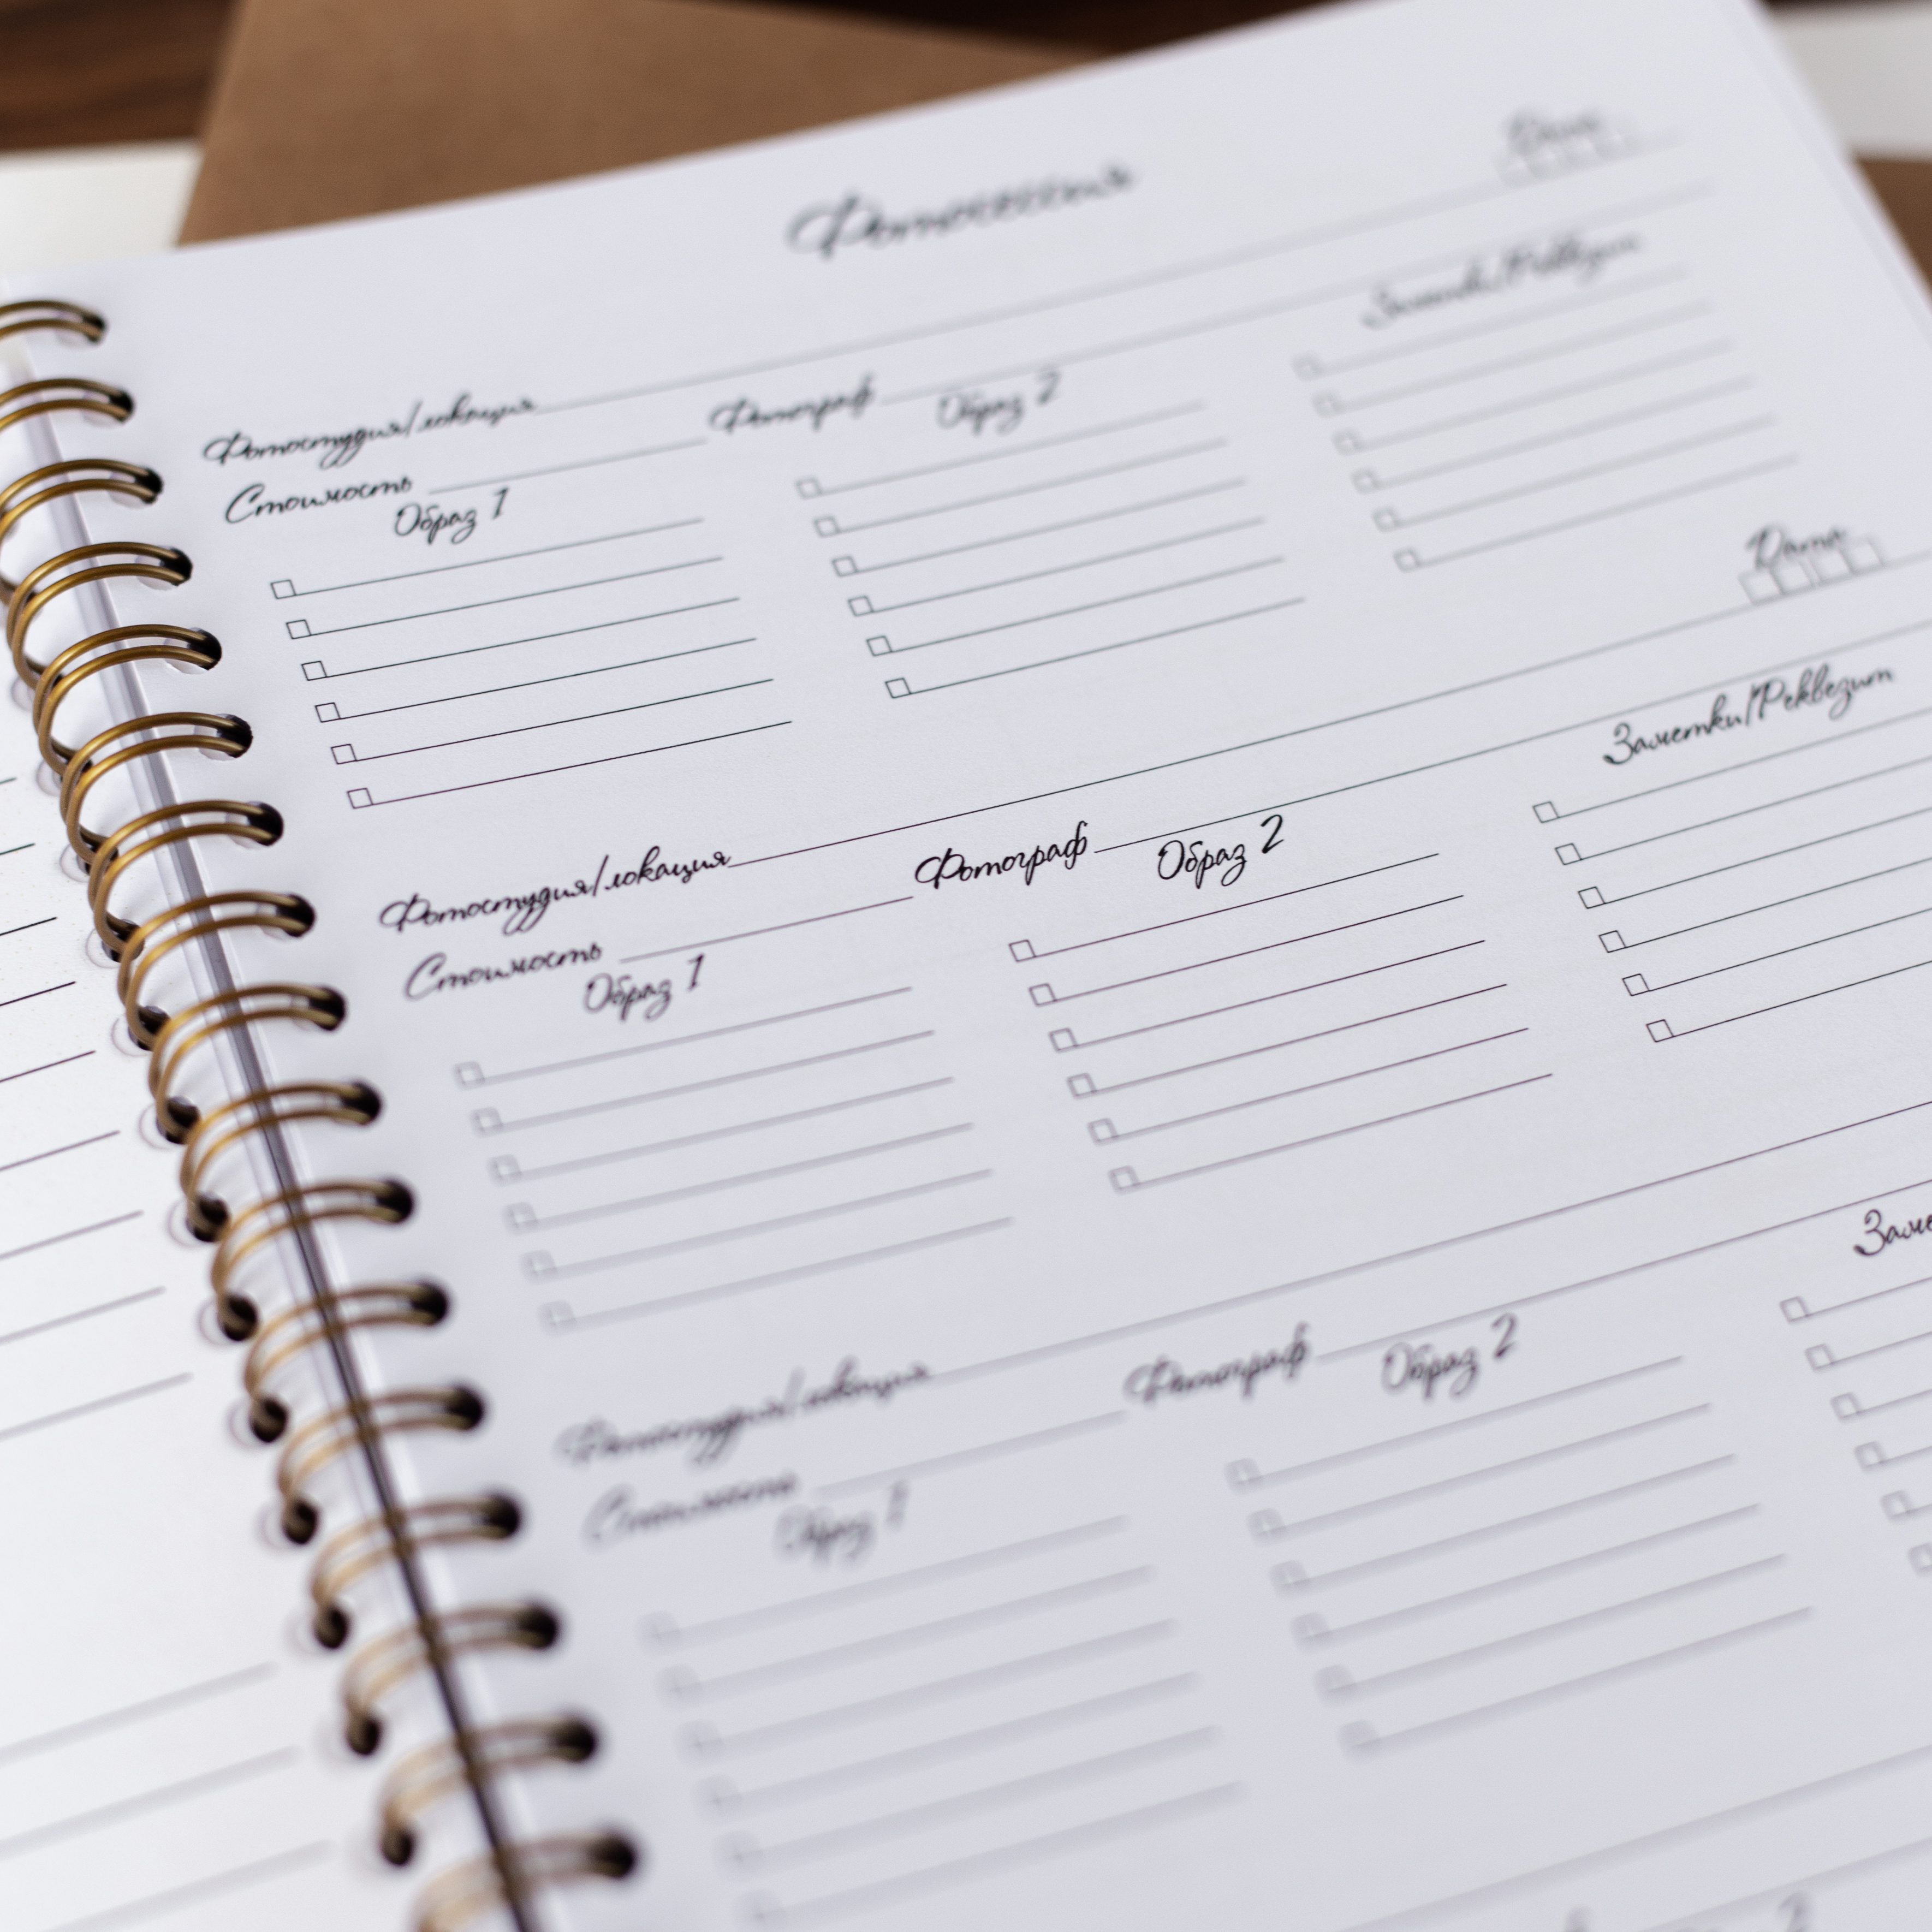 Фотосессия
Дата
Фотостудия/локация
Стоимость Фотограф
Образ 1 Образ 2 Заметки/Реквезит
Дата
Фотостудия/локация
Стоимость Фотограф
Образ 1 Образ 2 Заметки/Реквезит
Фотостудия/локация
Стоимость Фотограф
Образ 1 Образ 2
2